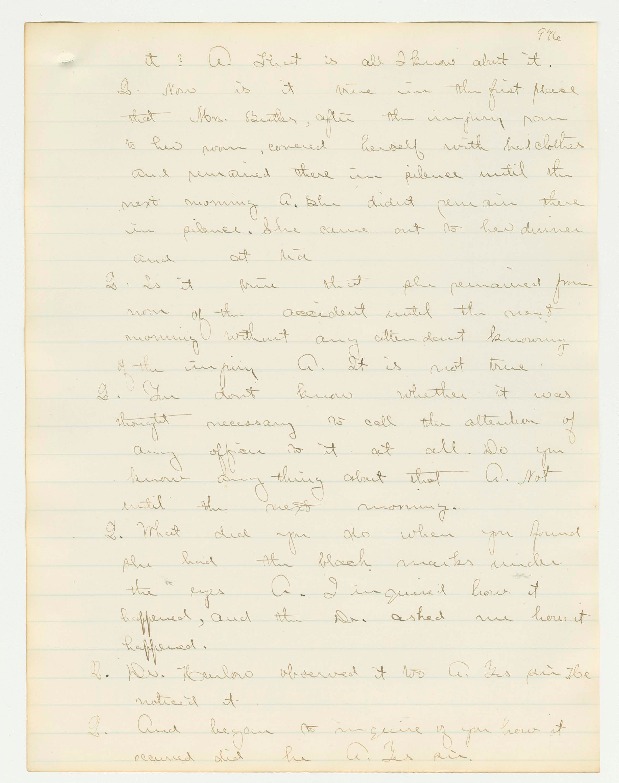 it? A. That is all I know about it.
Q. Now is it true in the first place
that Mrs. Butler, after the injury ran
to her room, covered herself with bedclothes
and remained there in silence until the
next morning A. She didn't remain there
in silence. She came out to her dinner
and at tea
Q. Is it true that she remained from
noon of the accident until the next
morning without any attendant knowing
of the injury A. It is not true.
Q. You don't know whether it was
thought necessary to call the attention of
any officer to it at all. Do you
know anything about that A. Not
until the next morning.
Q. What did you do when you found
she had the black marks under
the eyes A. I inquired how it
happened, and the Dr. asked me how it
happened.
Q. Dr. observed it too A. Yes sir He
noticed it
Q. And began to inquire of you how it
occurred did he A. Yes sir.